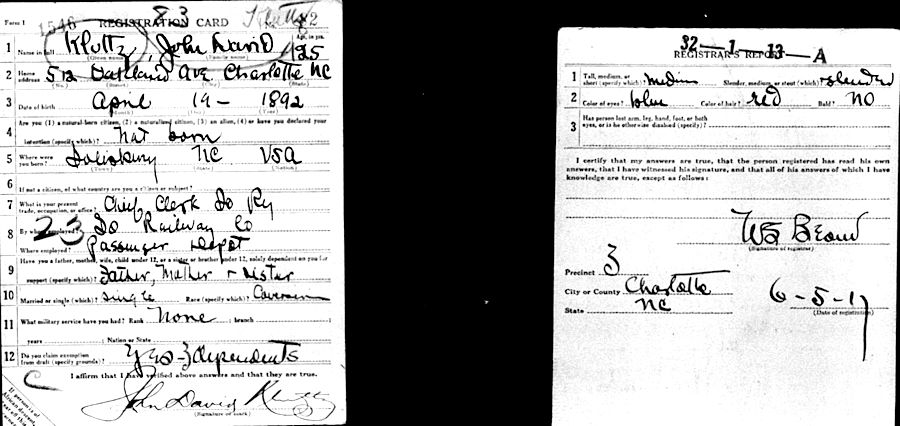 Form 1 1546 REGISTRATION CARD No. 82
83 Kluttz
1 Name in full Kluttz, John David Age, in yrs. 25
(Given name) (Family name)
2 Home address 512 Oakland Ave Charlotte NC
(No.) (Street) (City) (State)
3 Date of birth April 19 — 1892
(Month) (Day) (Year)
4 Are you (1) a natural-born citizen, (2) a naturalized citizen, (3) an alien, (4) or have you declared your
intention (specify which)? Nat born
5 Where were you born? Salisbury NC USA
(Town) (State) (Nation)
6 If not a citizen, of what country are you a citizen or subject?
7 What is your present trade, occupation, or office? Chief Clerk So Ry
23
8 By whom employed? So Railway Co
Where employed? Passenger Depot
9 Have you a father, mother, wife, child under 12, or a sister or brother under 12, solely dependent on you for
support (specify which)? Father, Mother + sister
10 Married or single (which)? single Race (specify which)?
11 What military service have you had? Rank None ; branch
years ; Nation or State
12 Do you claim exemption from draft (specify grounds)? Yes — 3 dependents
C I affirm that I have verified above answers and that they are true.
John David Kluttz
If person is of African descent,
32—1—13—A
REGISTRAR'S REPORT
1 Tall, medium, or short (specify which)? medium Slender, medium, or stout (which)? slender
2 Color of eyes? blue Color of hair? red Bald? No
3 Has person lost arm, leg, hand, foot, or both
eyes, or is he otherwise disabled (specify)?
I certify that my answers are true, that the person registered has read his own
answers, that I have witnessed his signature, and that all of his answers of which I have
knowledge are true, except as follows:
(Signature of registrar)
Precinct 3
City or County Charlotte
State NC
6-5-17
(Date of registration)